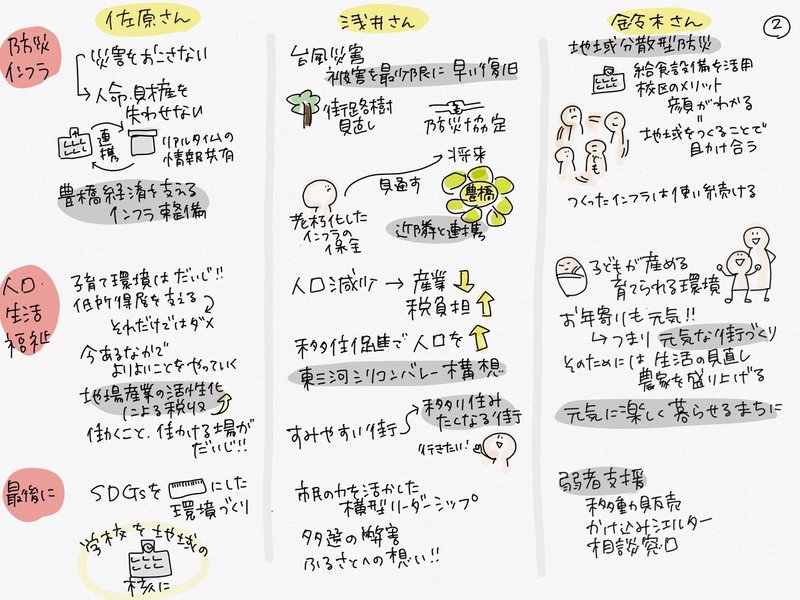 佐原さん
浅井さん
鈴木さん
②
防災
インフラ
災害をおこさない
人命、財産を
失わせない
連携
リアルタイムの
情報共有
豊橋経済を支える
インフラ整備
台風災害
被害を最小限に 早い復旧
街路樹
見直し
防災協定
将来
見通す
豊橋
老朽化した
インフラの
保全
近隣と連携
地域分散型防災
給食設備を活用
校区のメリット
顔がわかる
=
地域をつくることで
助け合う
つくったインフラは使い続ける
人口・
生活
福祉
子育て環境はだいじ!!
低所得層を支える
それだけではダメ
今あるなかで
よりよいことをやっていく
地場産業の活性化
による税収
働くこと、働かける場が
だいじ!!
人口減少 → 産業
税負担
移住促進で人口を
東三河シリコンバレー構想
すみやすい街
移り住み
たくなる街
行きたい!
子どもが産める
育てられる環境
お年寄りも元気!!
つまり 元気な街づくり
そのためには 生活の見直し
農家を盛り上げる
元気に楽しく暮らせるまちに
最後に
SDGsを
にした
環境づくり
学校を地域の
核に
市民の力を活かした
横型リーダーシップ
多選の弊害
ふるさとへの想い!!
弱者支援
移動販売
かけ込みシェルター
相談窓口